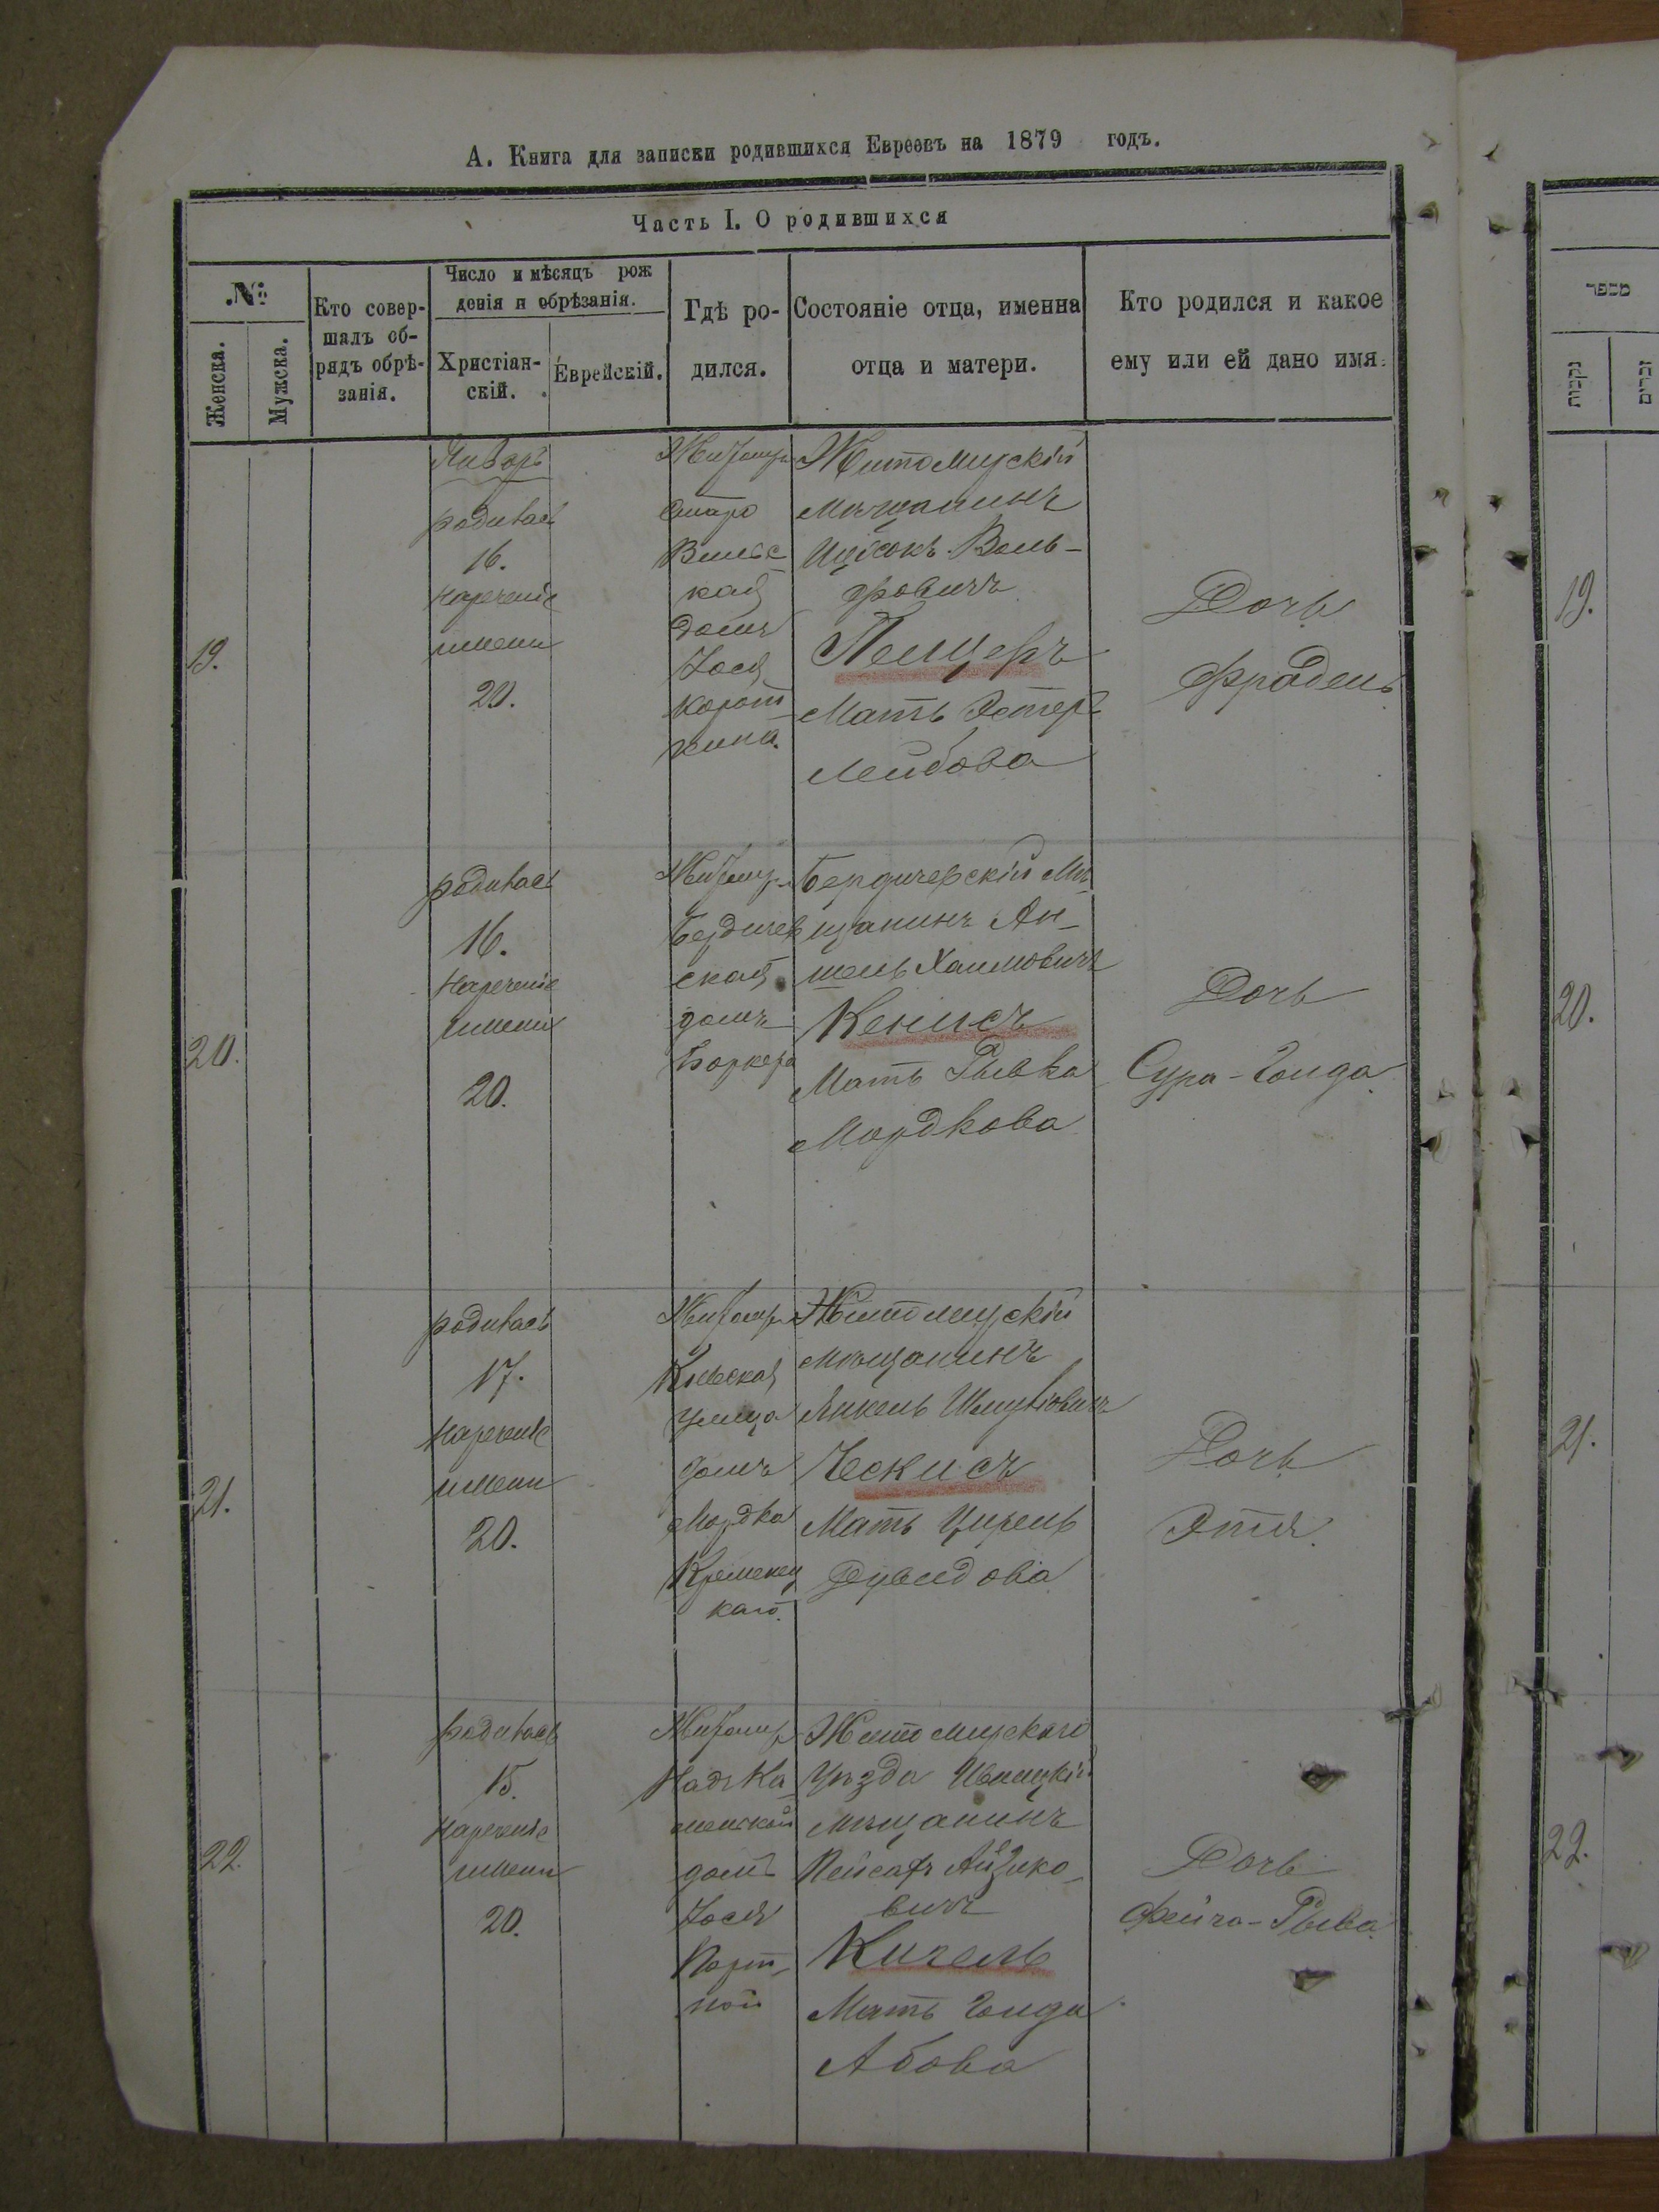 А. Книга для записки родившихся Евреевъ на 1879 годъ.
Часть I. О родившихся
№
Женска.
Мужска.
Кто совер-
шалъ об-
рядъ обрѣ-
занія.
Число и мѣсяцъ рож
денія и обрѣзанія.
Христіан-
скій.
Еврейскій.
Гдѣ ро-
дился.
Состояніе отца, именна
отца и матери.
Кто родился и какое
ему или ей дано имя.
מספר
נקבות
זכרים
19.
Январь
родилась
16.
нареченіе
имени
20.
Житомир
Старо
Вильс
кая
домъ
Іося
Корот
кина.
Житомирскій
мѣщанинъ
Ицсокъ Воль-
фовичъ
Пемцеръ
Мать Эстеръ
Лейбова
Дочь
Фрадель
19.
20.
родилась
16.
нареченіе
имени
20.
Житомир
Бердичев
ская
домъ
Боркера
Бердичевскій мѣ
щанинъ Ан-
шель Хаимовичъ
Кенисъ
Мать Рывка
Мордкова
Дочь
Сура-Голда
20.
21.
родилась
17.
нареченіе
имени
20.
Житомир
Кіевская
улица
домъ
Мордка
Кременец
каго.
Житомирскій
мѣщанинъ
Янкель Шмулiовичъ
Ческисъ
Мать Цирель
Дувидова
Дочь
Этля.
21.
22.
родилась
15.
нареченіе
имени
20.
Житомир
Надъ Ка
менской
домъ
Іося
Порт-
ной
Житомирскаго
уѣзда Ивницкій
мѣщанинъ
Пейсахъ Айзико-
вичъ
Кигель
Мать Голда
Абова
Дочь
Фейга-Рыва.
22.